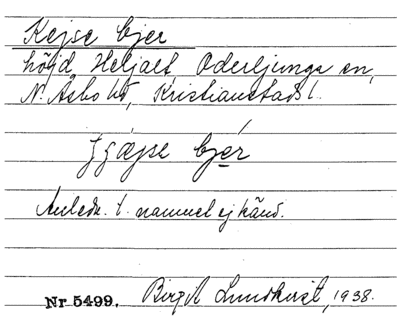 Kejse bjer
höjd, Heljalt, Oderljunga sn,
N. Åsbo hd, Kristianstads l.
bjér
Anledn. t. namnet ej känd.
Nr 5499. Birgit Lundkvist, 1938.